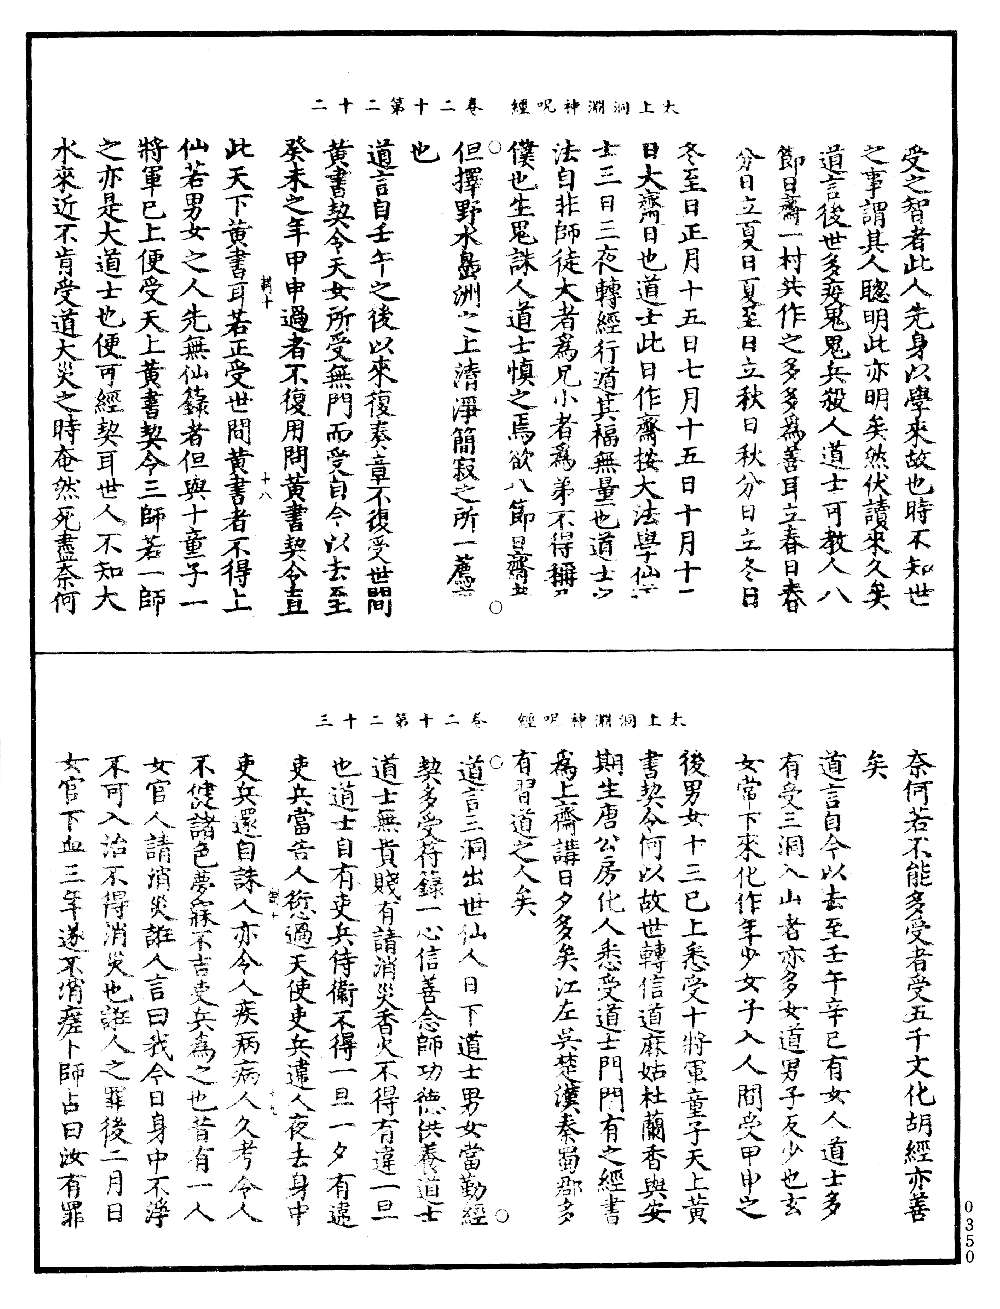 太上洞淵神呪經　卷二十第二十二
受之智者此人先身以學來故也時不知世
之事謂其人聰明此亦明矣然伏讀來久矣
道言後世多疫鬼鬼兵殺人道士可教人八
節日齋一村共作之多多爲善耳立春日春
分日立夏日夏至日立秋日秋分日立冬日
冬至日正月十五日七月十五日十月十
日大齋日也道士此日作齋按大法學仙
士三日三夜轉經行道其福無量也道士
法自非師徒大者爲兄小者爲弟不得稱
僕也生鬼誅人道士慎之焉欲八節日齋
但擇野水島洲之上清淨簡寂之所一
也
道言自壬午之後以來復奏章不復受世間
黃書契令天女所受無門而受自今以去至
癸未之年甲申過者不復用問黃書契令直
此天下黃書耳若正受世間黃書者不得上
仙若男女之人先無仙籙者但與十童子一
將軍已上便受天上黃書契令三師若一師
之亦是大道士也便可經契耳世人不知大
水來近不肯受道大災之時奄然死盡奈何
十八
太上洞淵神呪經　卷二十第二十三
奈何若不能多受者受五千文化胡經亦善
矣
道言自今以去至壬午辛巳有女人道士多
有受三洞入山者亦多女道男子反少也玄
女常下來化作年少女子入人間受甲申之
後男女十三已上悉受十將軍童子天上黃
書契令何以故世轉信道麻姑杜蘭香與安
期生唐公房化人悉受道士門門有之經書
爲上齋講日夕多矣江左吳楚漢秦蜀郡多
有習道之人矣
道言三洞出世仙人日下道士男女當勤經
契多受符籙一心信善念師功德供養道士
道士無貴賤有請消災香火不得有違一旦
也道士自有吏兵侍衛不得一旦一夕有違
吏兵當告人愆過天使吏兵違人夜去身中
吏兵還自誅人亦令人疾病病人久考令人
不健諸色夢寐不吉吏兵爲之也昔有一人
女官人請消災誑人言曰我今日身中不淨
不可入治不得消災也誑人之罪後二月日
女官下血三年遂不消瘥卜師占曰汝有罪
十九
0350